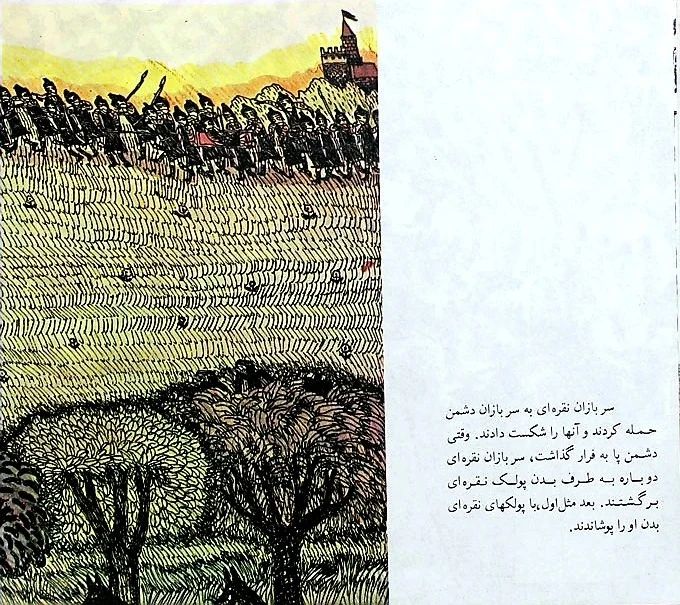 سربازان نقره‌ای به سربازان دشمن
حمله کردند و آنها را شکست دادند. وقتی
دشمن پا به فرار گذاشت، سربازان نقره‌ای
دوباره به طرف بدن پولک نقره‌ای
برگشتند. بعد مثل‌اول،با پولکهای نقره‌ای
بدن او را پوشاندند.